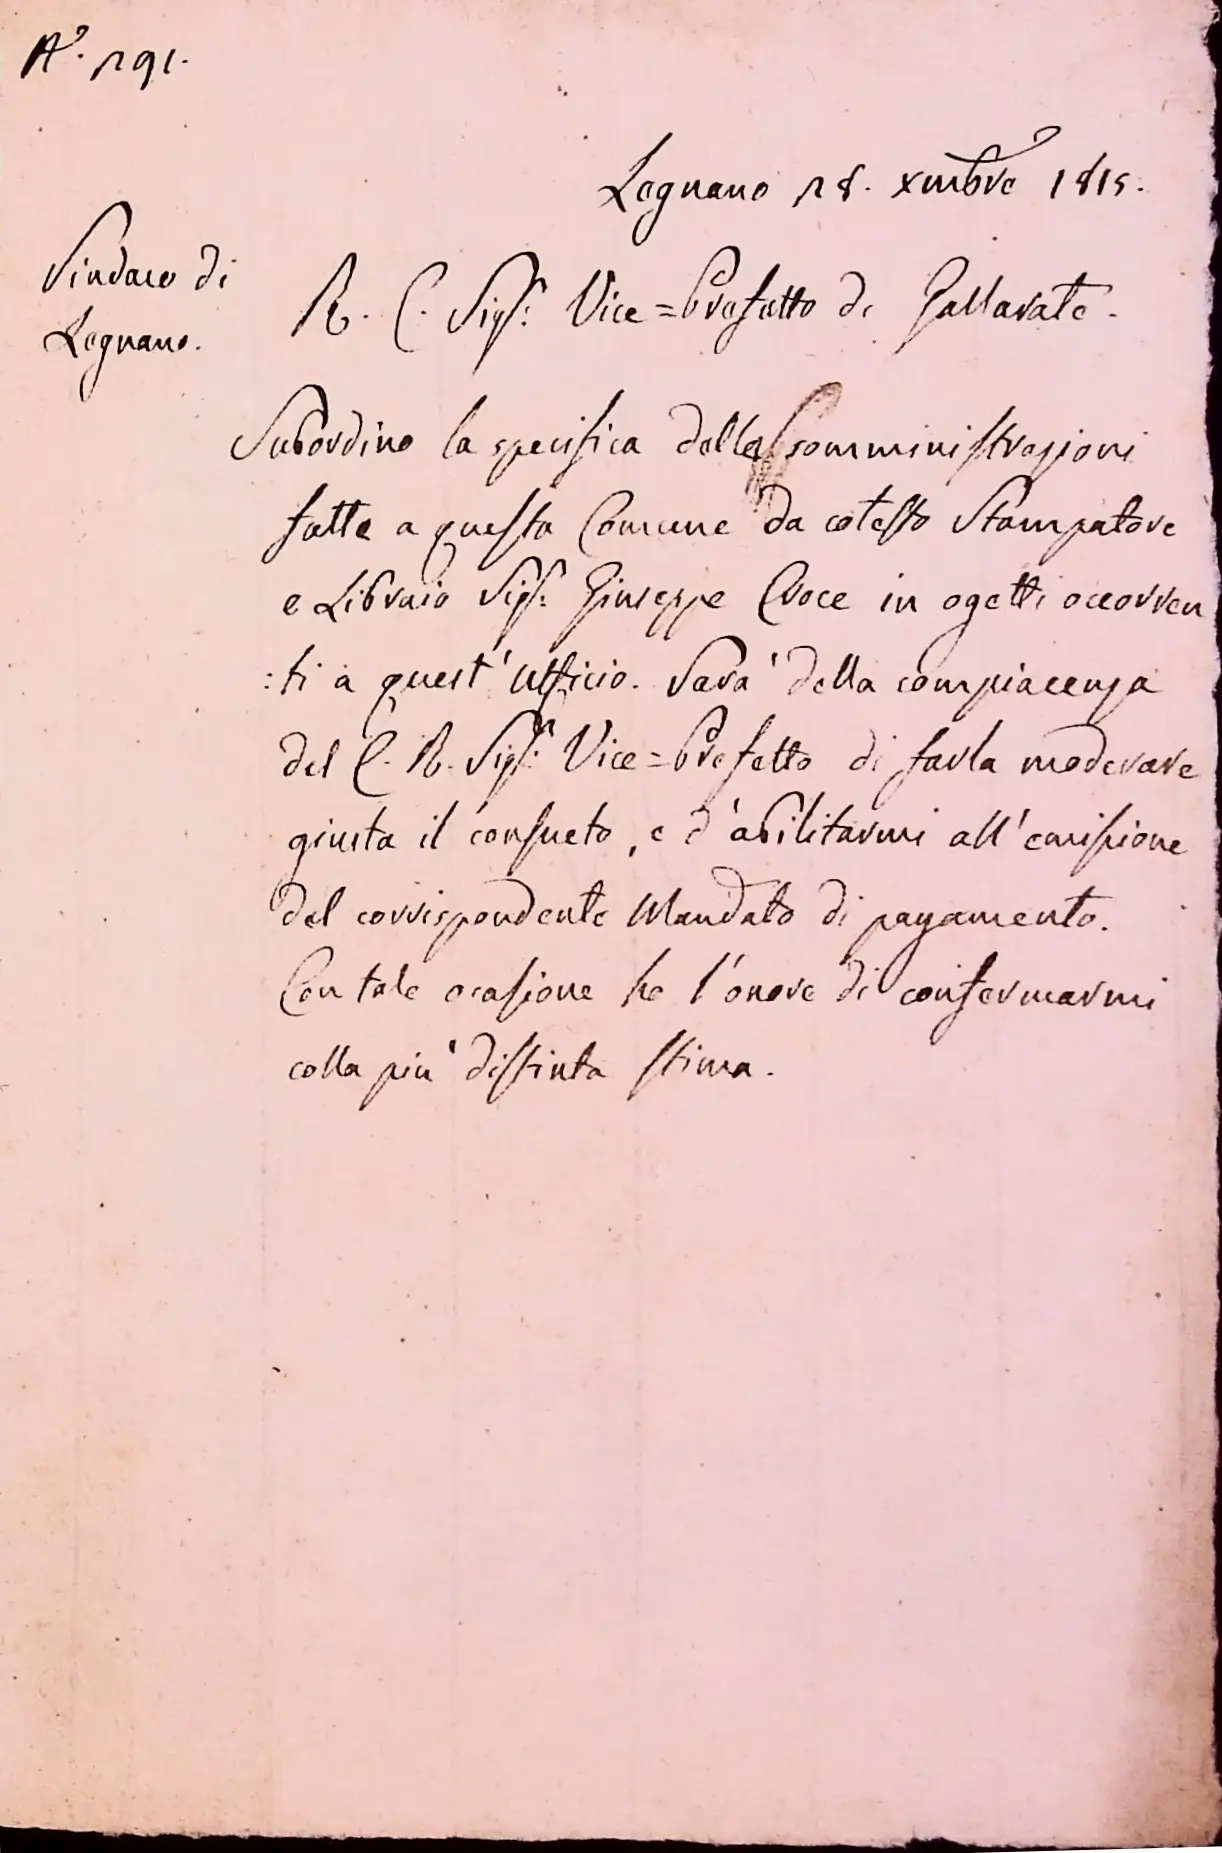 N.° 291.
Legnano 28. Xmbre 1815.
Sindaco di
Legnano.
R. C. Sigr. Vice=Prefetto di Gallarate.
Subordino la specifica delle somministrazioni
fatte a questa Comune da cotesto Stampatore
e Libraio Sigr. Giuseppe Croce in ogetti occorren
:ti a quest'ufficio. Sarà della compiacenza
del C. R. Sigr. Vice=Prefetto di farla moderare
giusta il consueto, e d'abilitarmi all'emissione
del corrispondente Mandato di pagamento.
Con tale ocasione ho l'onore di confermarmi
colla più distinta stima.